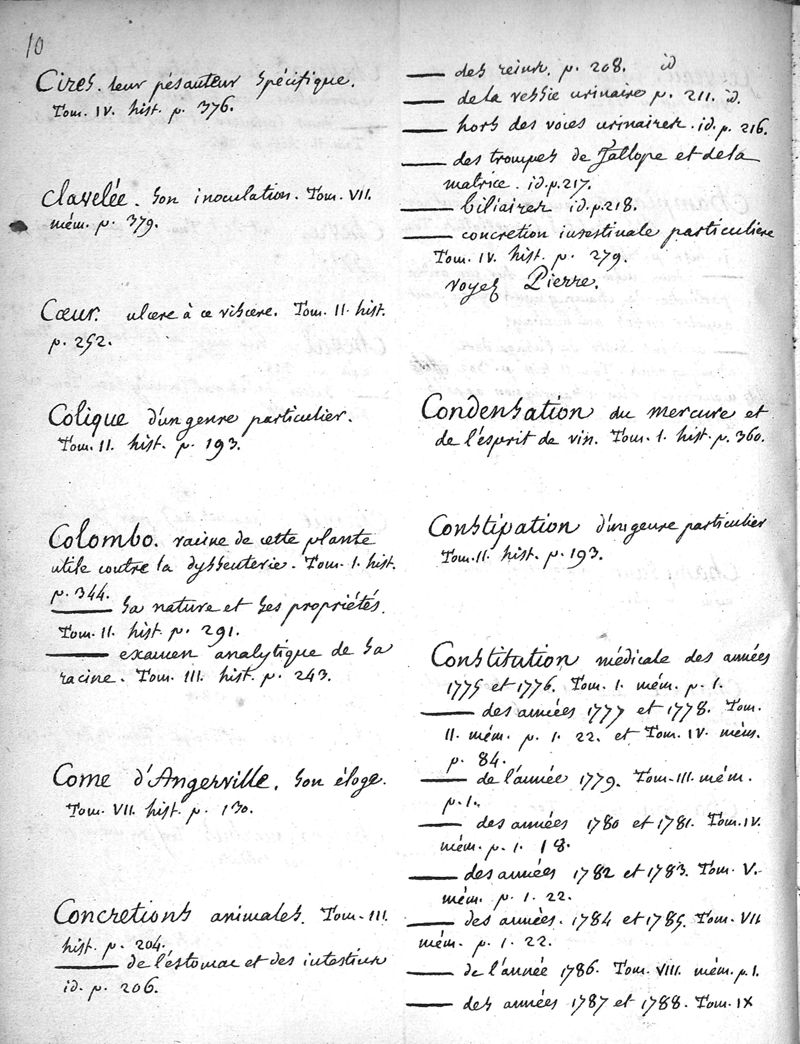 10
Cires. leur pésanteur spécifique.
Tom. IV. hist. p. 376.
Clavelée. son inoculation. Tom. VII.
mém. p. 379.
Cœur. ulcere à ce viscere. Tom. II. hist.
p. 252.
Colique d'un genre particulier.
Tom. II. hist. p. 193.
Colombo. racine de cette plante
utile contre la dyssenterie. Tom. I. hist.
p. 344.
—— sa nature et ses propriétés.
Tom. II. hist. p. 291.
—— examen analytique de sa
racine. Tom. III. hist. p. 243.
Come d'Angerville. son éloge.
Tom. VII. hist. p. 130.
Concretions animales. Tom. III.
hist. p. 204.
—— de l'éstomac et des intestins
id. p. 206.
—— des reins. p. 208. id
—— de la vessie urinaire p. 211. id.
—— hors des voies urinaires. id. p. 216.
—— des trompes de Fallope et de la
matrice. id. p. 217.
—— biliaires id. p. 218.
—— concretion intestinale particuliere
Tom. IV. hist. p. 279.
voyez Pierre.
Condensation du mercure et
de l'esprit de vin. Tom. I. hist. p. 360.
Constipation d'un genre particulier
Tom. II. hist. p. 193.
Constitution médicale des années
1775 et 1776. Tom. I. mém. p. 1.
—— des années 1777 et 1778. Tom.
II. mém. p. 1. 22. et Tom. IV. mém.
p. 84.
—— de l'année 1779. Tom. III. mém.
p. 1.
—— des années 1780 et 1781. Tom. IV.
mém. p. 1. 18.
—— des années 1782 et 1783. Tom. V.
mém. p. 1. 22.
—— des années. 1784 et 1785. Tom. VII
mém. p. 1. 22.
—— de l'année 1786. Tom. VIII. mém. p. 1.
—— des années 1787 et 1788. Tom. IX